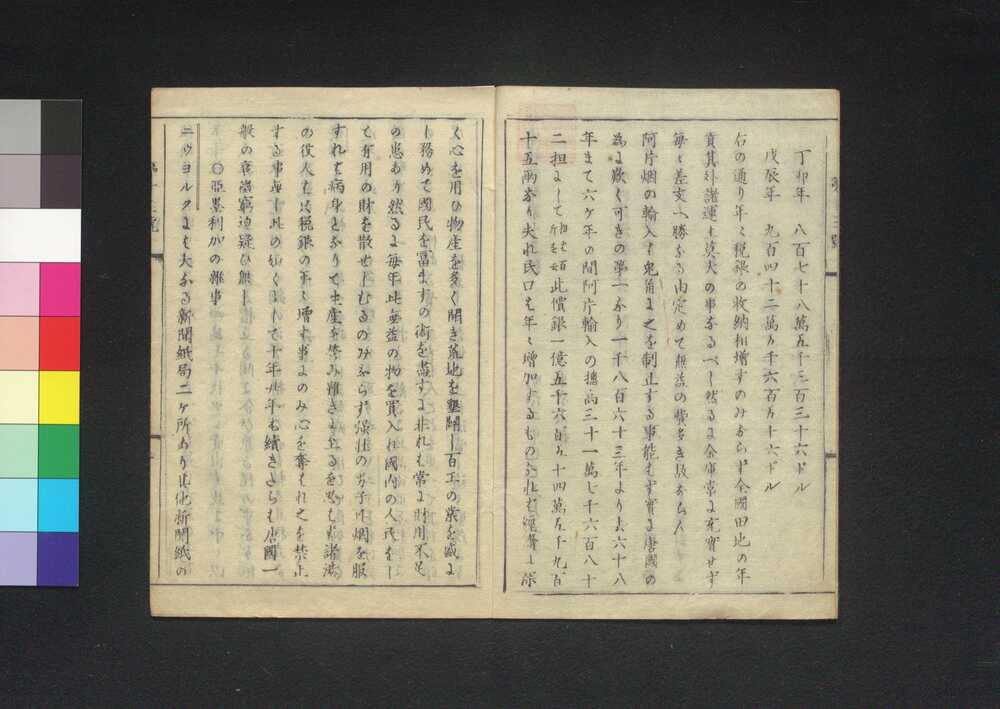 丁卯年　八百七十八萬五千三百三十六ドル
戊辰年　九百四十二萬万千六百万十六ドル
右の通り年々税銀の收納相増すのみならず全國田地の年
貢其外諸運も莫大の事なるべし然るに金庫常に充實せず
毎々差支へ勝なる由定めて無益の費多き故ならん
阿片烟の輸入は兎角に之を制止する事能はず實に唐國の
為に歎く可きの第一なり一千八百六十三年より去六十八
年まて六ケ年の間阿片輸入の總高三十一萬七千六百八十
二担にして 此價銀一億五千六百万十四萬五千九百
十五兩なり夫れ民口は年々増加するものなれは
く心を用ひ物産を多く開き荒地を墾闢し百工の業を盛に
し務めて國民を冨ますの術を盡すに非れは常に財用不足
の患あり然るに毎年此無益の物を買入れ國内の人民をし
て有用の財を散せしむるのみならず強壮の男子片烟を服
すれは病身となりて生産を營み難きに至るを
の役人も税銀の年々増す事にのみ心を奪はれ之を禁止
する事無し此の如くにして十年廿年も續きたらは唐國一
般の衰微窮迫疑ひ無し
○亞墨利加の雜事
ニウヨルクには大なる新聞紙局二ケ所あり其他新聞紙の